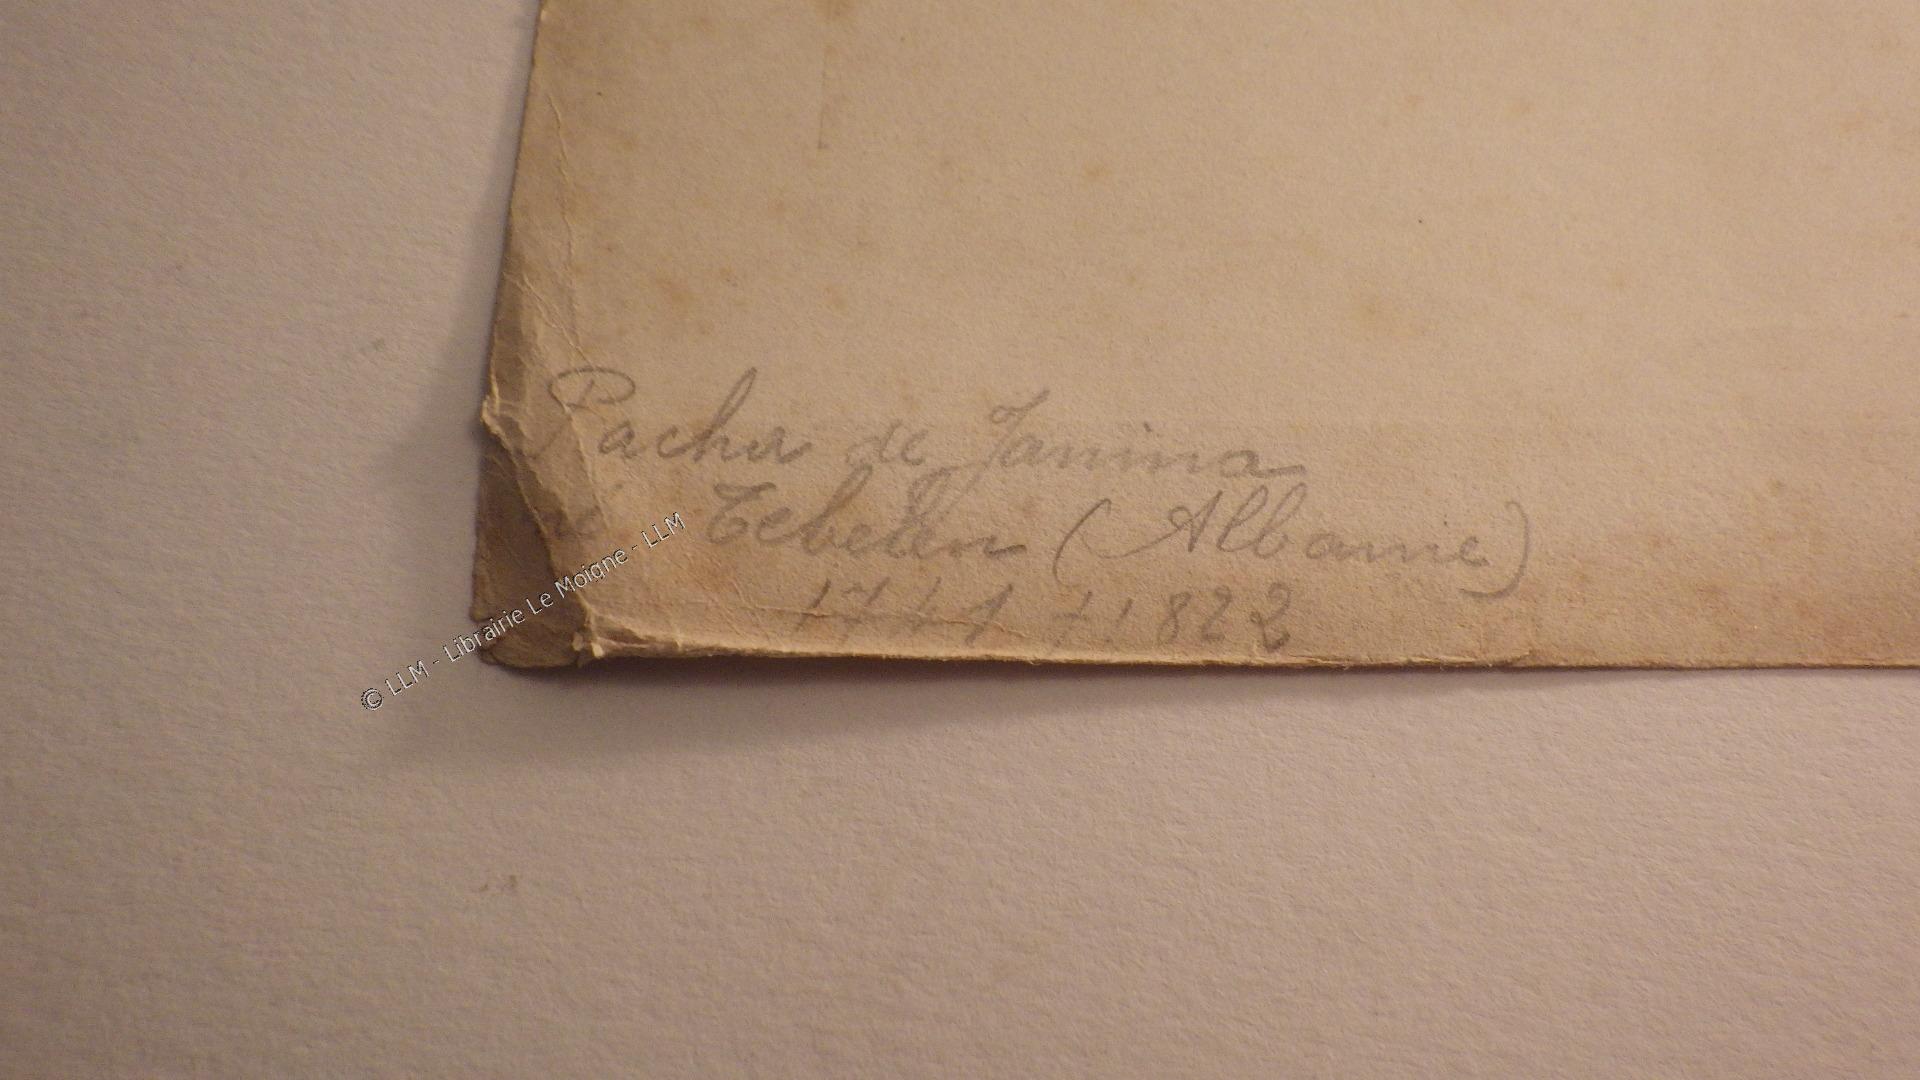 Pacha de Janina
né Tebelen (Albanie)
1741 † 1822
© LLM - Librairie Le Moigne - LLM